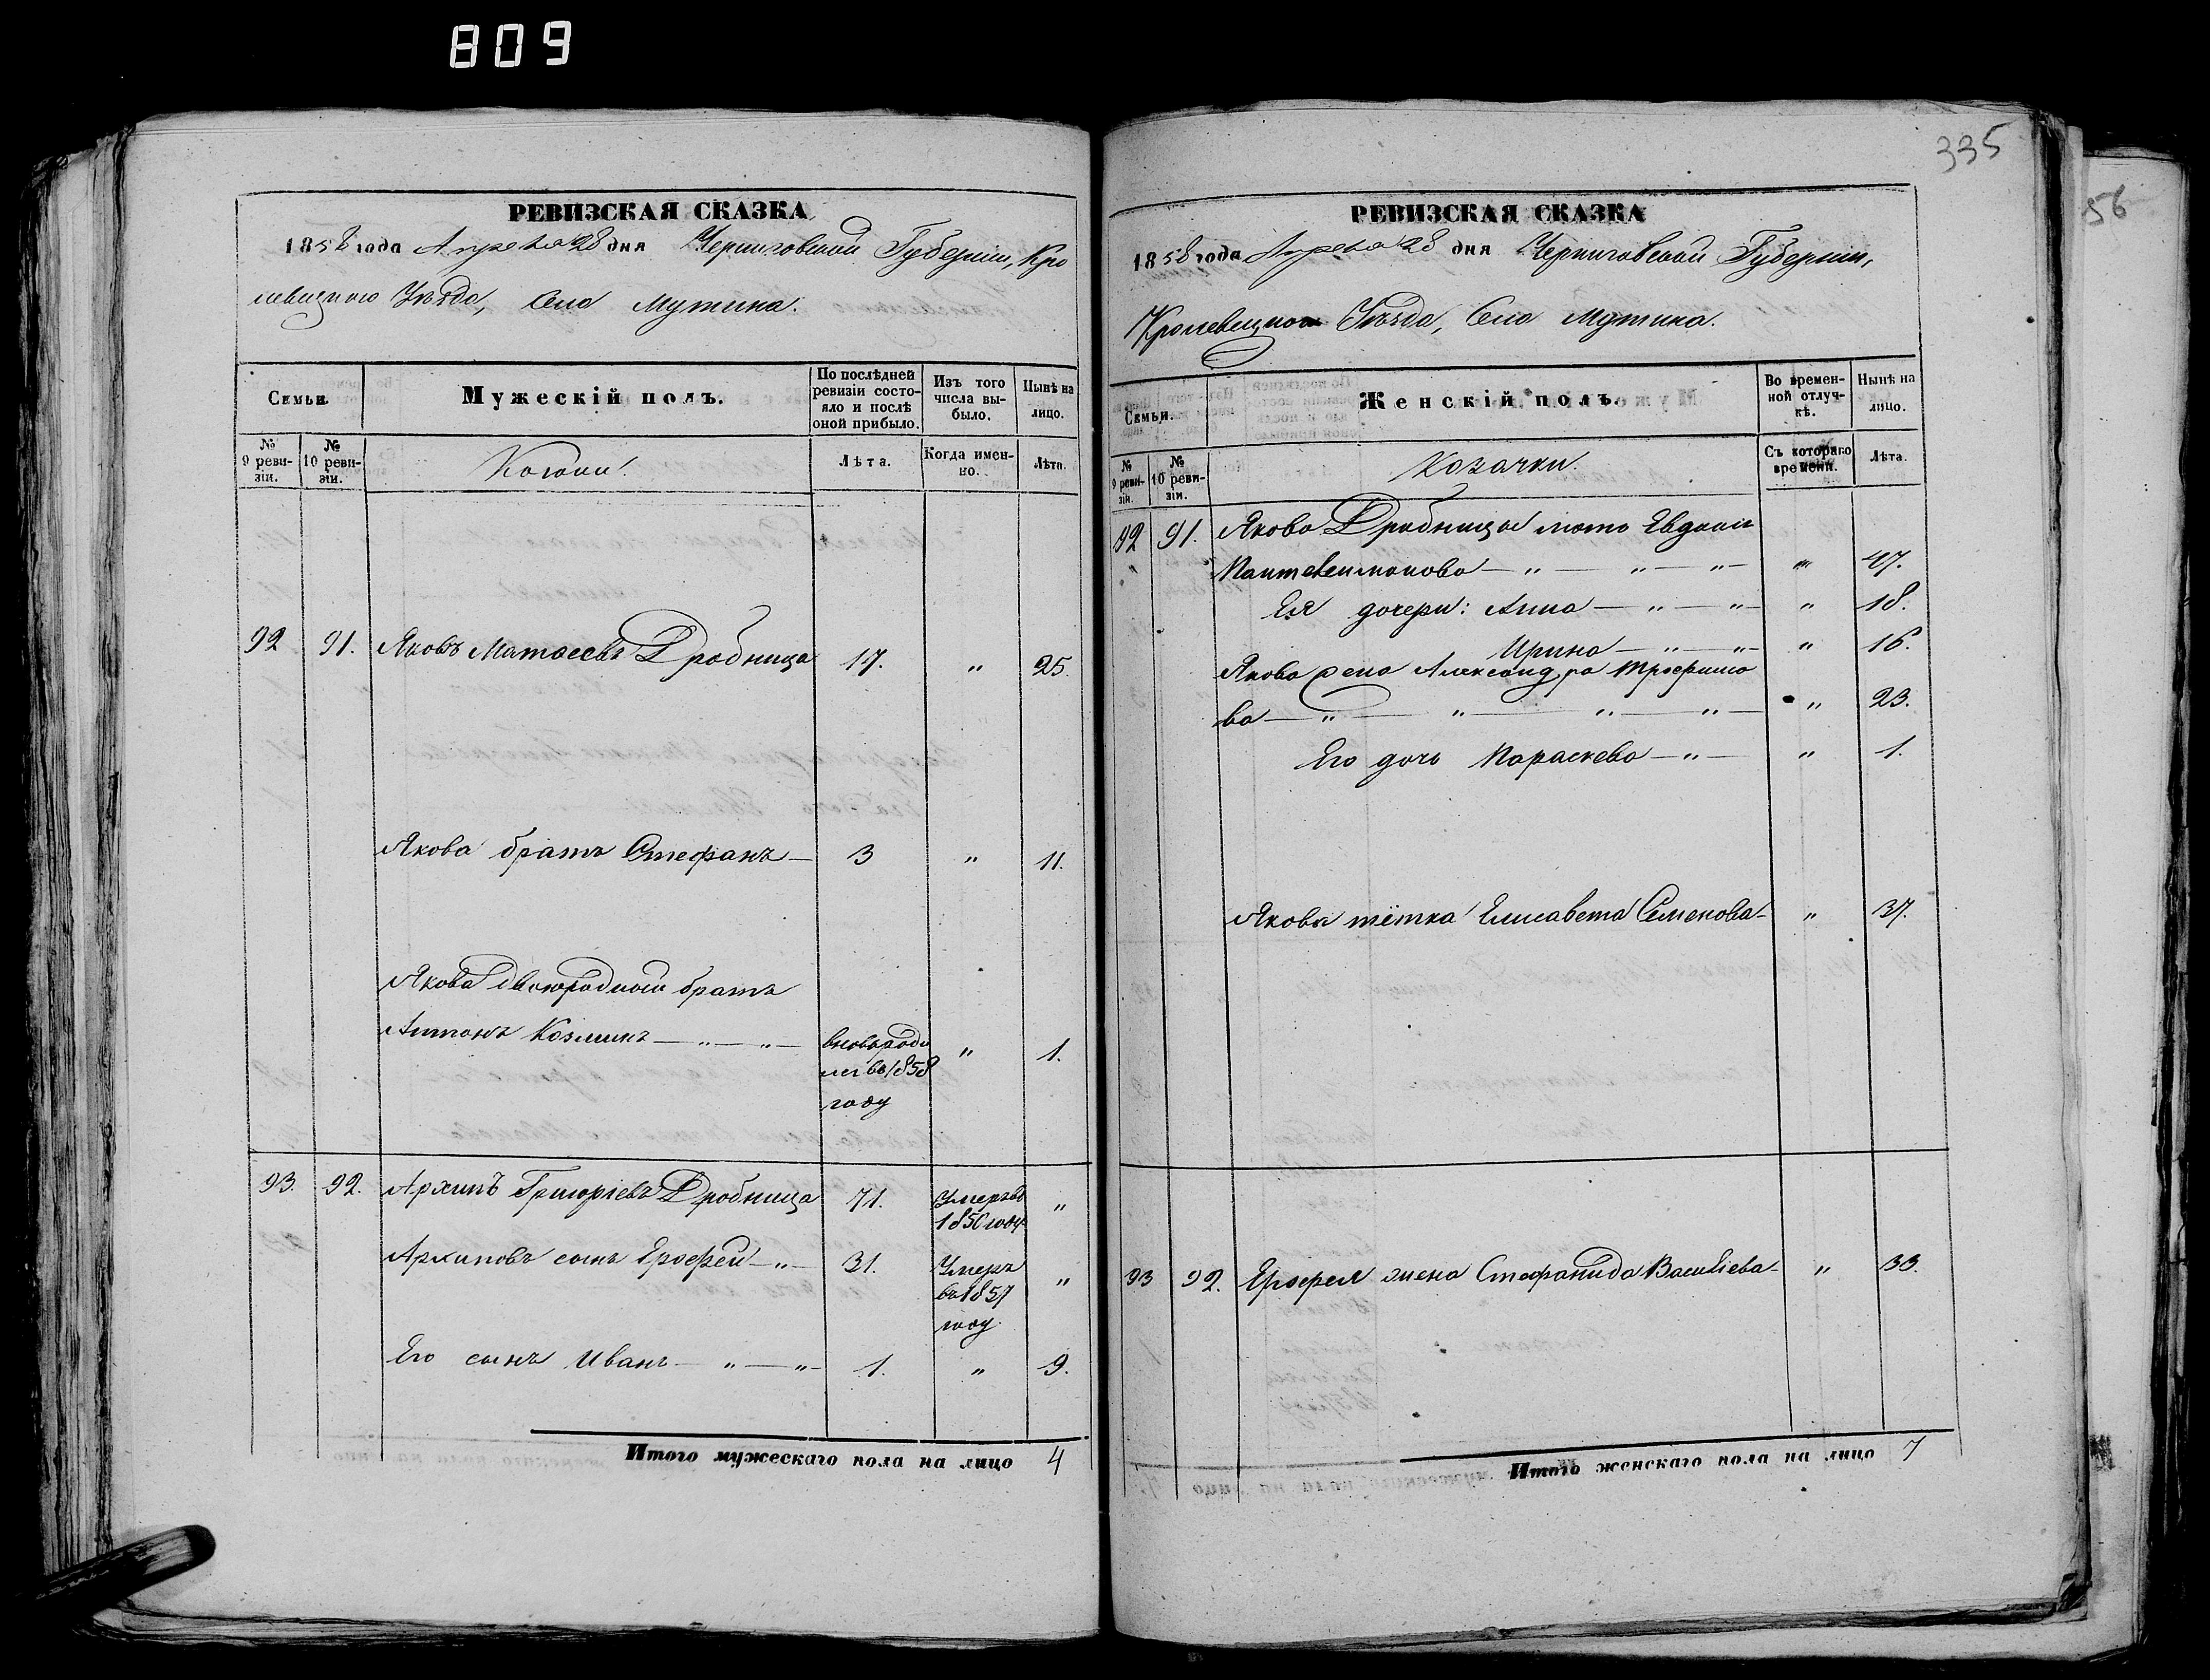 809
РЕВИЗСКАЯ СКАЗКА
1858 года Апреля 28 дня Черниговской Губернии, Кро
левецкого Уѣзда, Села Мутина.
Семьи.
Мужескій полъ.
По послѣдней ревизіи состояло и послѣ оной прибыло.
Изъ того числа выбыло.
Нынѣ на лицо.
№ 9 ревизіи.
№ 10 ревизіи.
Козаки.
Лѣта.
Когда именно.
Лѣта.
92 91. Яковъ Матвеевъ Дробница 17. " 25.
Якова братъ Стефанъ — 3 " 11.
Якова двоюродный братъ
Антонъ Козминъ — " — " — вновь роди " 1.
лся въ 1858
году
93. 92. Архипъ Григоріевъ Дробница 71. Умеръ въ "
1850 году.
Архиповъ сынъ Ерофей — " — 31. Умеръ "
въ 1857
году.
Его сынъ Иванъ — " — " — 1. " 9.
Итого мужескаго пола на лицо 4
335
56
РЕВИЗСКАЯ СКАЗКА
1858 года Апреля 28 дня Черниговской Губернии,
Кролевецкого Уѣзда, Села Мутина.
Семьи.
Женскій полъ.
Во временной отлучкѣ.
Нынѣ на лицо.
№ 9 ревизіи.
№ 10 ревизіи.
Козачки.
Съ котораго времени.
Лѣта.
92 91. Якова Дробницы мать Евдокия
" Пантелеимонова — " — " — " — " 47.
Ея дочери: Анна — " — " — " 18.
Ирина — " — " — " 16.
Якова жена Александра Трофимо
ва — " — " — " — " — " 23.
Его дочь Параскева — " — " 1.
Якова тётка Елисавета Семенова — " 37.
93 92. Ерофея жена Стефанида Василіева — " 33.
Итого женскаго пола на лицо 7